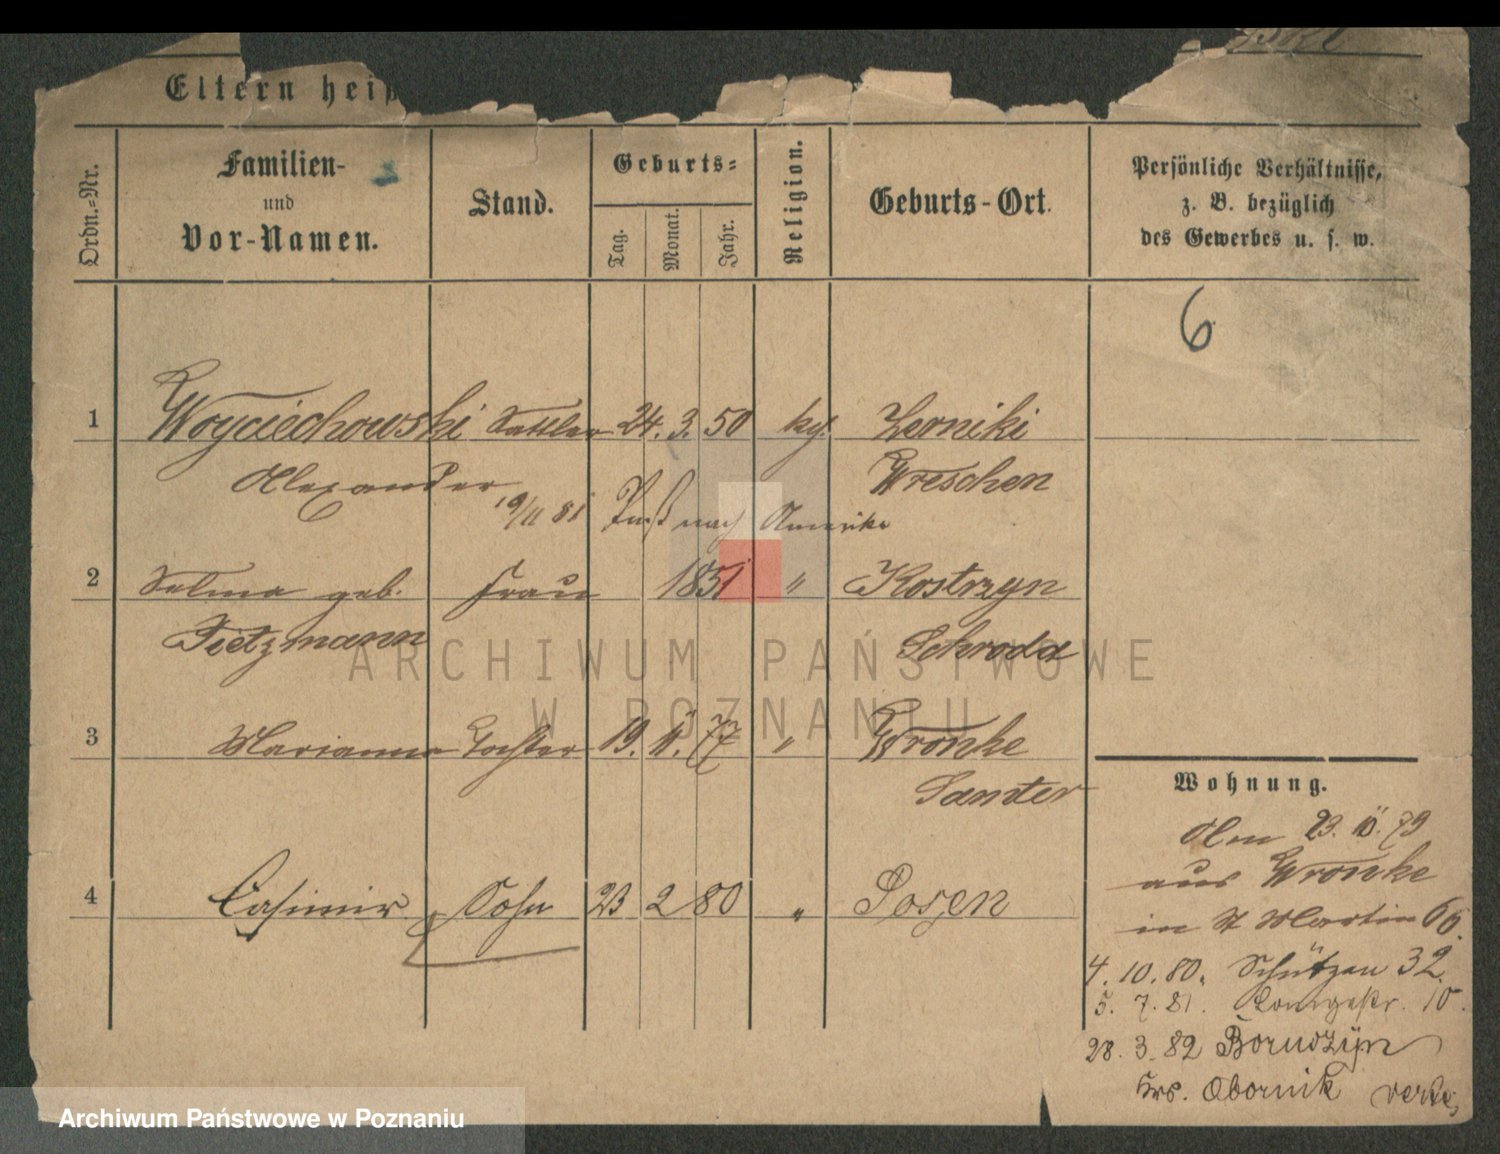 Eltern heiß
Ordn.=Nr.
Familien-
und
Vor-Namen.
Stand.
Geburts=
Tag.
Monat.
Jahr.
Religion.
Geburts-Ort.
Persönliche Verhältnisse,
z. B. bezüglich
des Gewerbes u. s. w.
6
1 Woyciechowski Sattler 24. 3. 50 kg. Zerniki
Alexander Wreschen
19/11 81 Paß nach Amerika
2 Selma geb. Frau 1851 " Kostrzyn
Tietzmann Schroda
3 Marianna Tochter 19. 11. 77 " Wronke
Samter
4 Casimir Sohn 23 2 80 " Posen
Wohnung.
Am 23. 10. 79
aus Wronke
in St Martin 66.
4. 10. 80. Schützen 32.
5. 7. 81. Langestr. 10.
28. 3. 82 Boruszyn
Krs. Obornik
ARCHIWUM PAŃSTWOWE
W POZNANIU
Archiwum Państwowe w Poznaniu